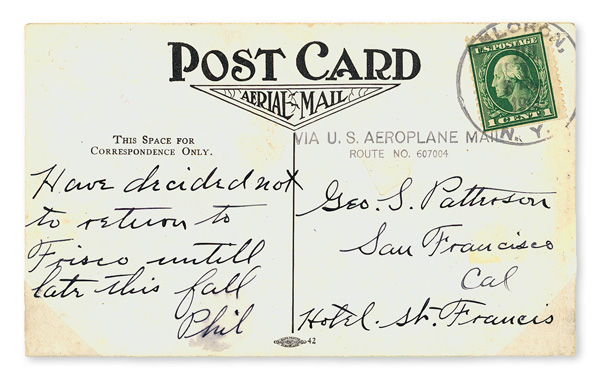 POST CARD
AERIAL MAIL
U.S. POSTAGE
1 CENT 1
N. Y.
VIA U. S. AEROPLANE MAIL
ROUTE NO. 607004
THIS SPACE FOR
CORRESPONDENCE ONLY.
Have decided not
to return to
Frisco untill
late this fall
Phil
Geo. S. Patterson
San Francisco
Cal
Hotel. St. Francis
42